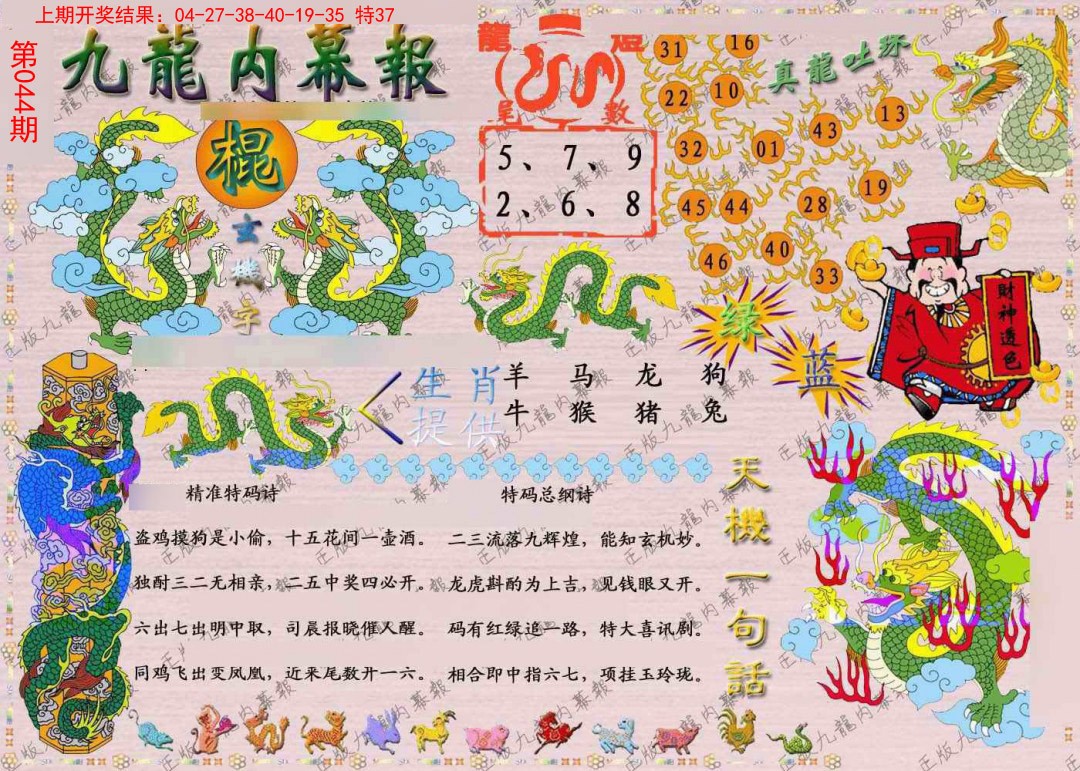 上期开奖结果：04-27-38-40-19-35 特37
第044期
九龍内幕報
棍
玄
機
字
龍燈
尾數
5、7、9
2、6、8
真龍吐珠
31
16
22
10
13
43
32
01
19
45
44
28
46
40
33
绿
蓝
財神透色
生肖
提供
羊 马 龙 狗
牛 猴 猪 兔
精准特码诗
盗鸡摸狗是小偷，十五花间一壶酒。
独酌三二无相亲，二五中奖四必开。
六出七出明中取，司晨报晓催人醒。
同鸡飞出变凤凰，近来尾数升一六。
特码总纲诗
二三流落九辉煌，能知玄机妙。
龙虎斟酌为上吉，见钱眼又开。
码有红绿追一路，特大喜讯剧。
相合即中指六七，项挂玉玲珑。
天機一句話
正版九龍内幕報